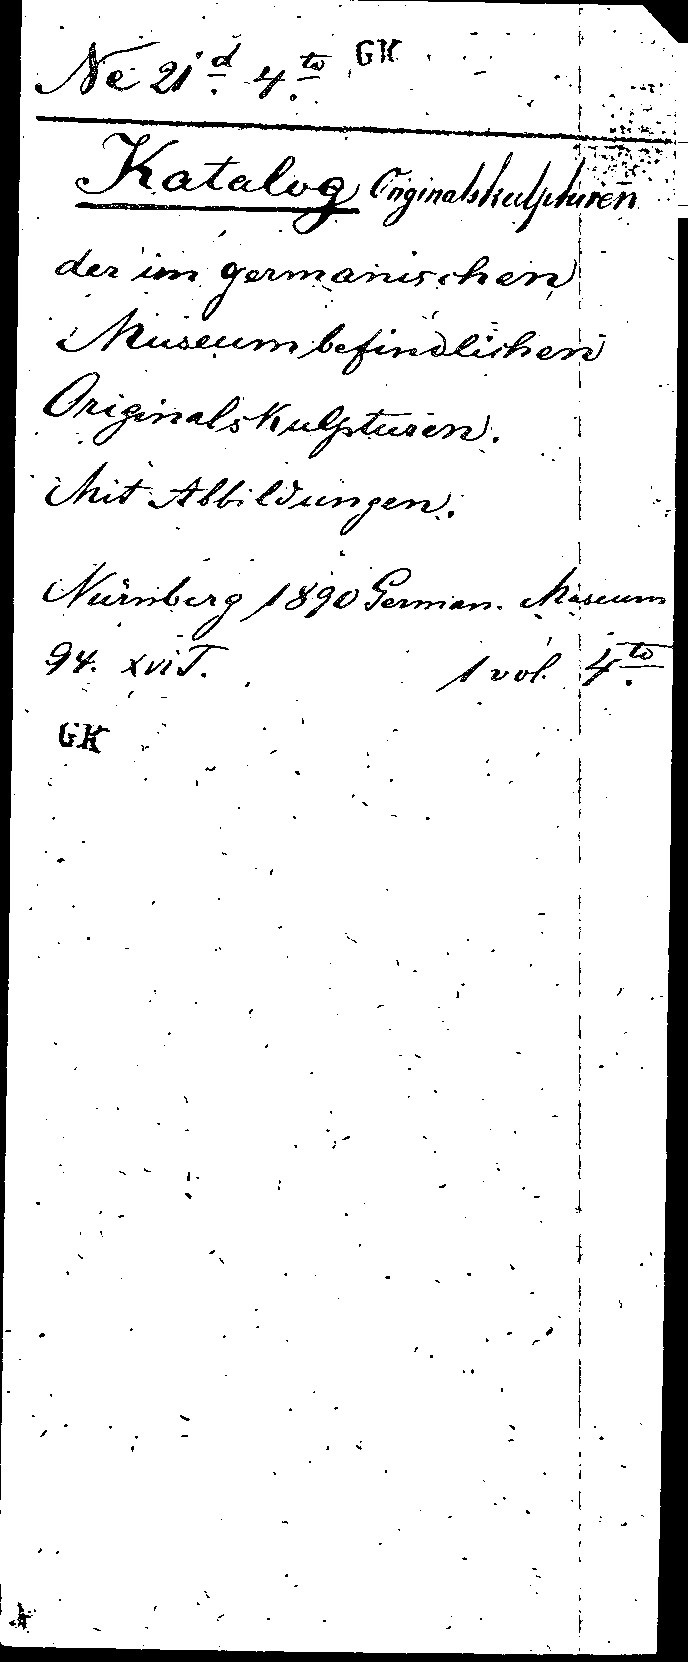 Ne 21 d 4to GK
Katalog Originalskulpturen
der im germanischen
Museum befindlichen
Originalskulpturen.
Mit Abbildungen.
Nürnberg 1890 German. Museum
94. XVI T. 1 vol. 4to
GK